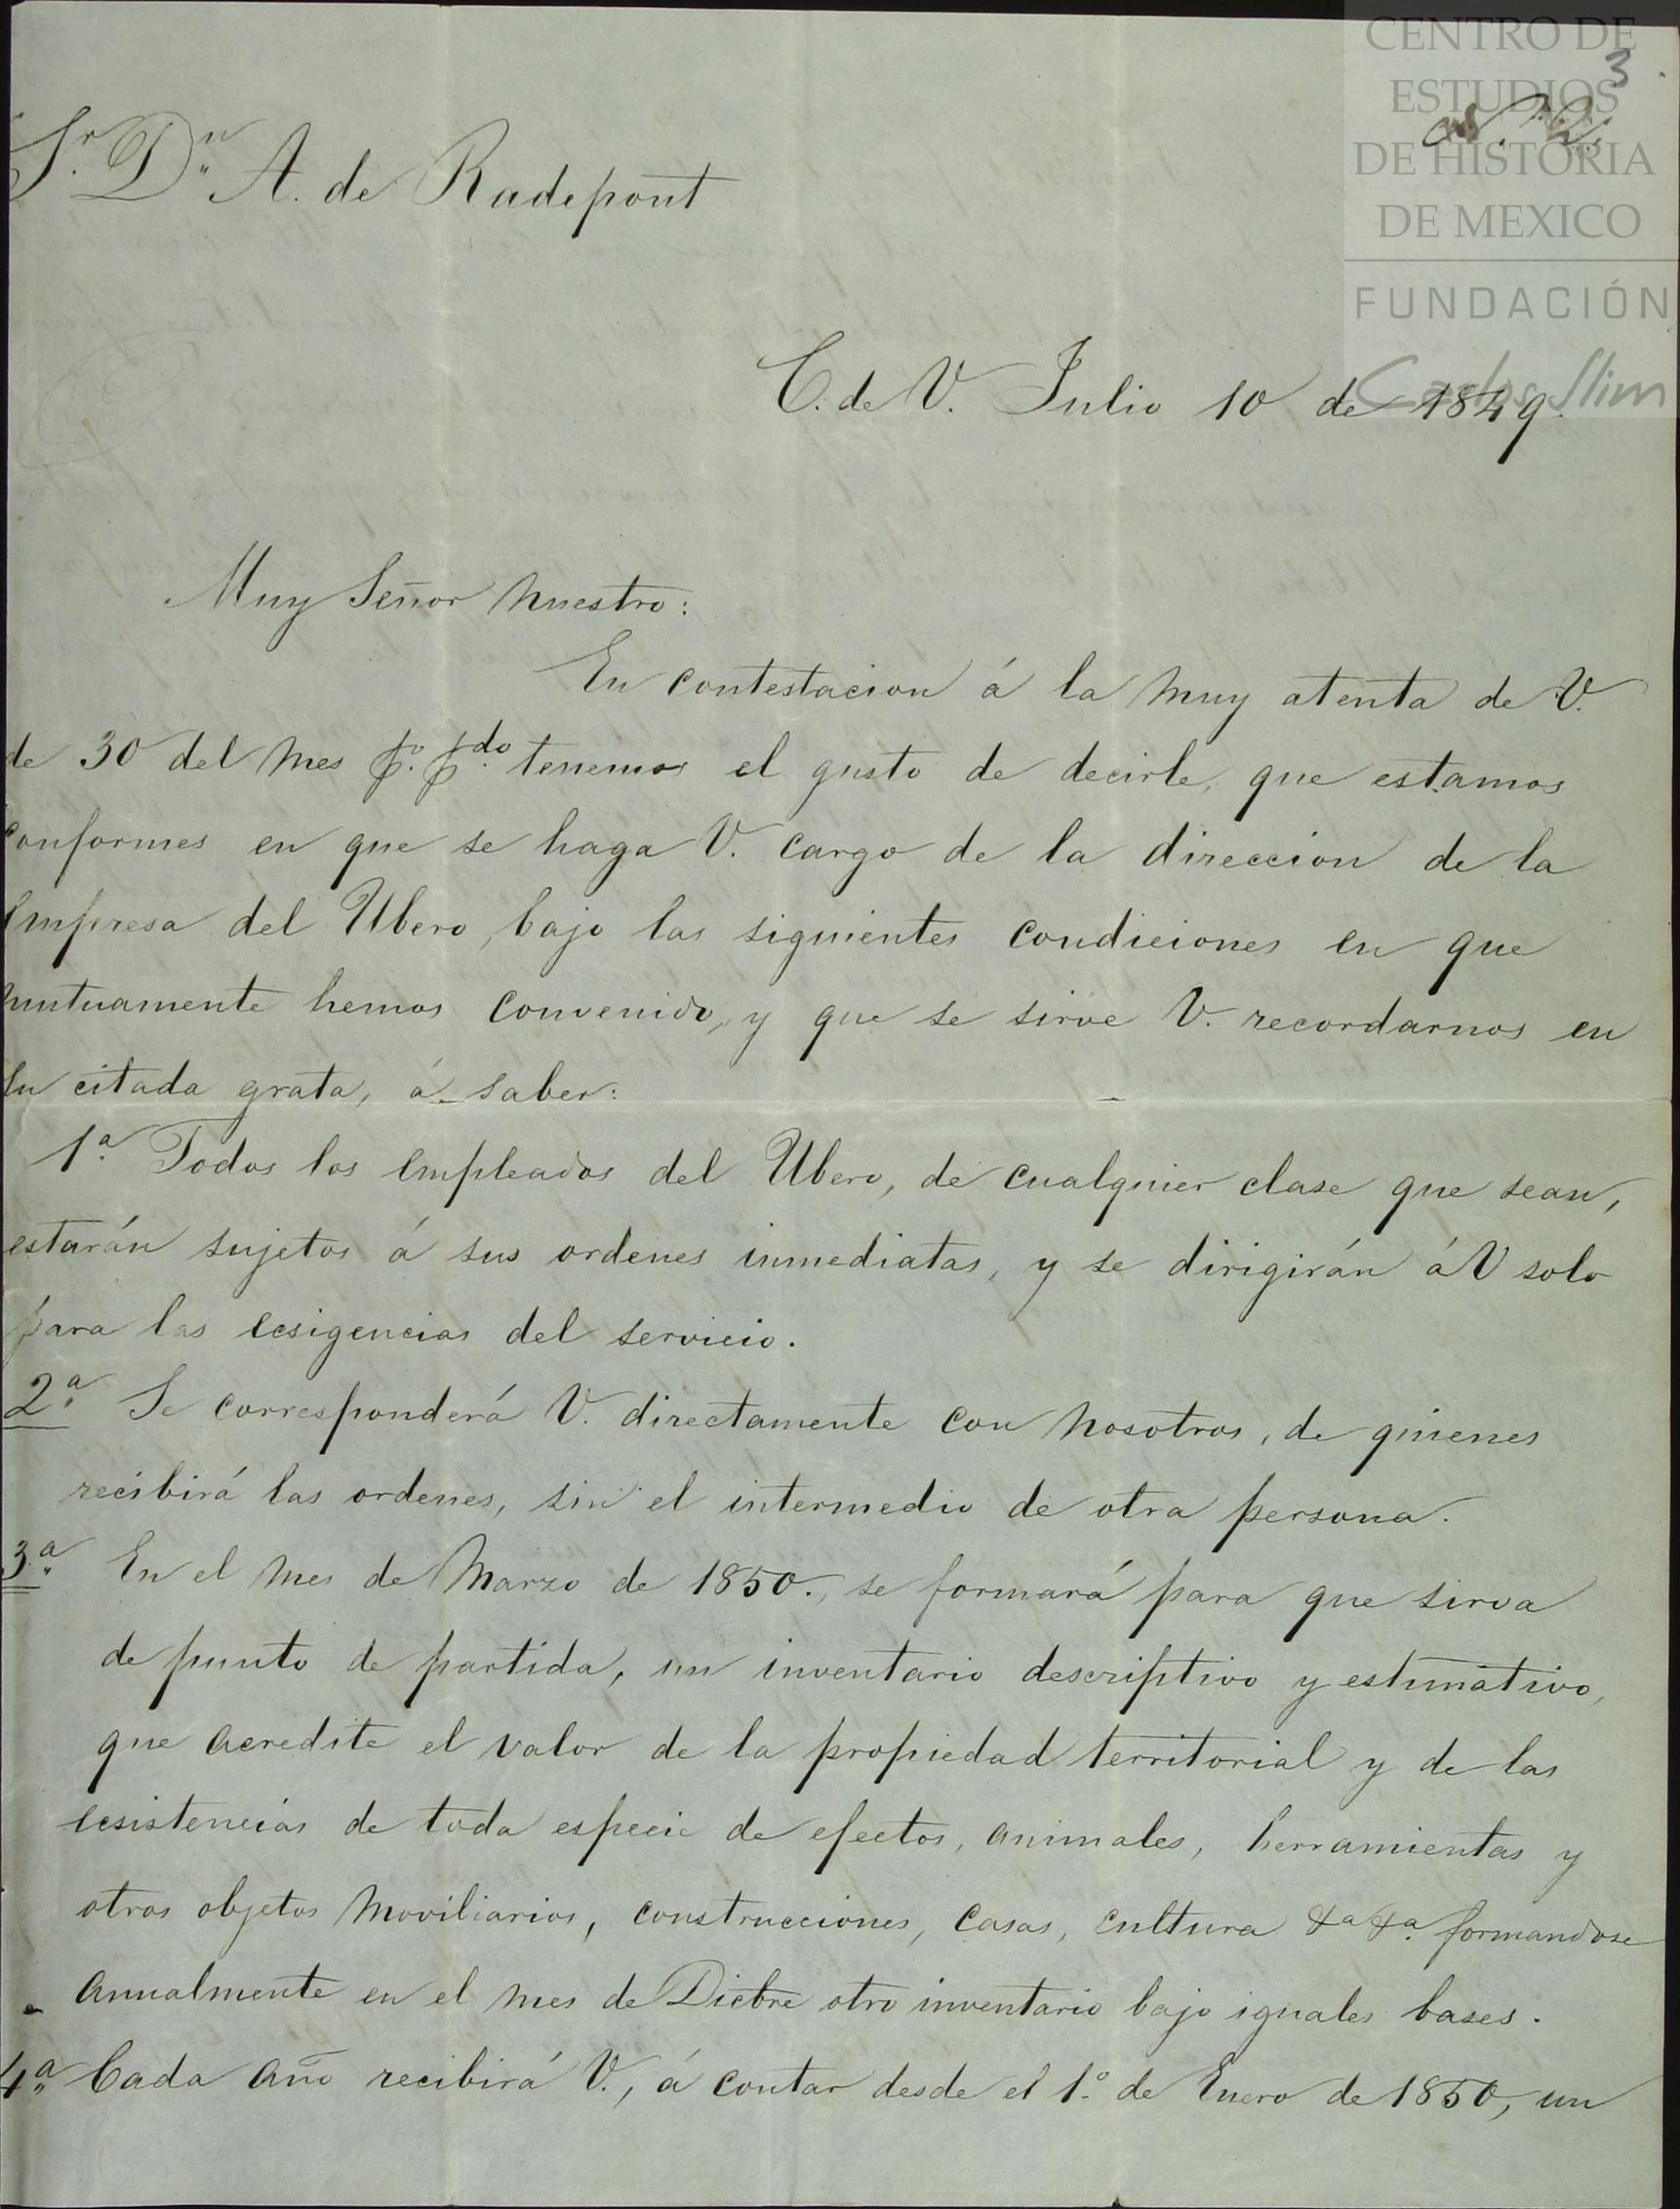 CENTRO DE
ESTUDIOS
DE HISTORIA
DE MEXICO
FUNDACIÓN
Carlos Slim
3
Sr. Dn. A. de Radepont
C. de V. Julio 10 de 1849.
Muy Señor nuestro:
En contestacion á la muy atenta de V.
de 30 del mes pº. pdo. tenemos el gusto de decirle, que estamos
conformes en que se haga V. cargo de la direccion de la
Empresa del Ubero, bajo las siguientes condiciones en que
mutuamente hemos convenido, y que se sirve V. recordarnos en
su citada grata, á saber:
1a. Todos los empleados del Ubero, de cualquier clase que sean,
estarán sujetos á sus ordenes inmediatas, y se dirigirán á V solo
para las ecsigencias del servicio.
2a. Se corresponderá V. directamente con nosotros, de quienes
recibirá las ordenes, sin el intermedio de otra persona.
3a. En el mes de Marzo de 1850., se formará para que sirva
de punto de partida, un inventario descriptivo y estimativo,
que acredite el valor de la propiedad territorial y de las
ecsistencias de toda especie de efectos, animales, herramientas y
otros objetos moviliarios, construcciones, casas, cultura &a &a. formandose
annualmente en el mes de Dicbre otro inventario bajo iguales bases.
4a. Cada año recibirá V., á contar desde el 1º. de Enero de 1850, un